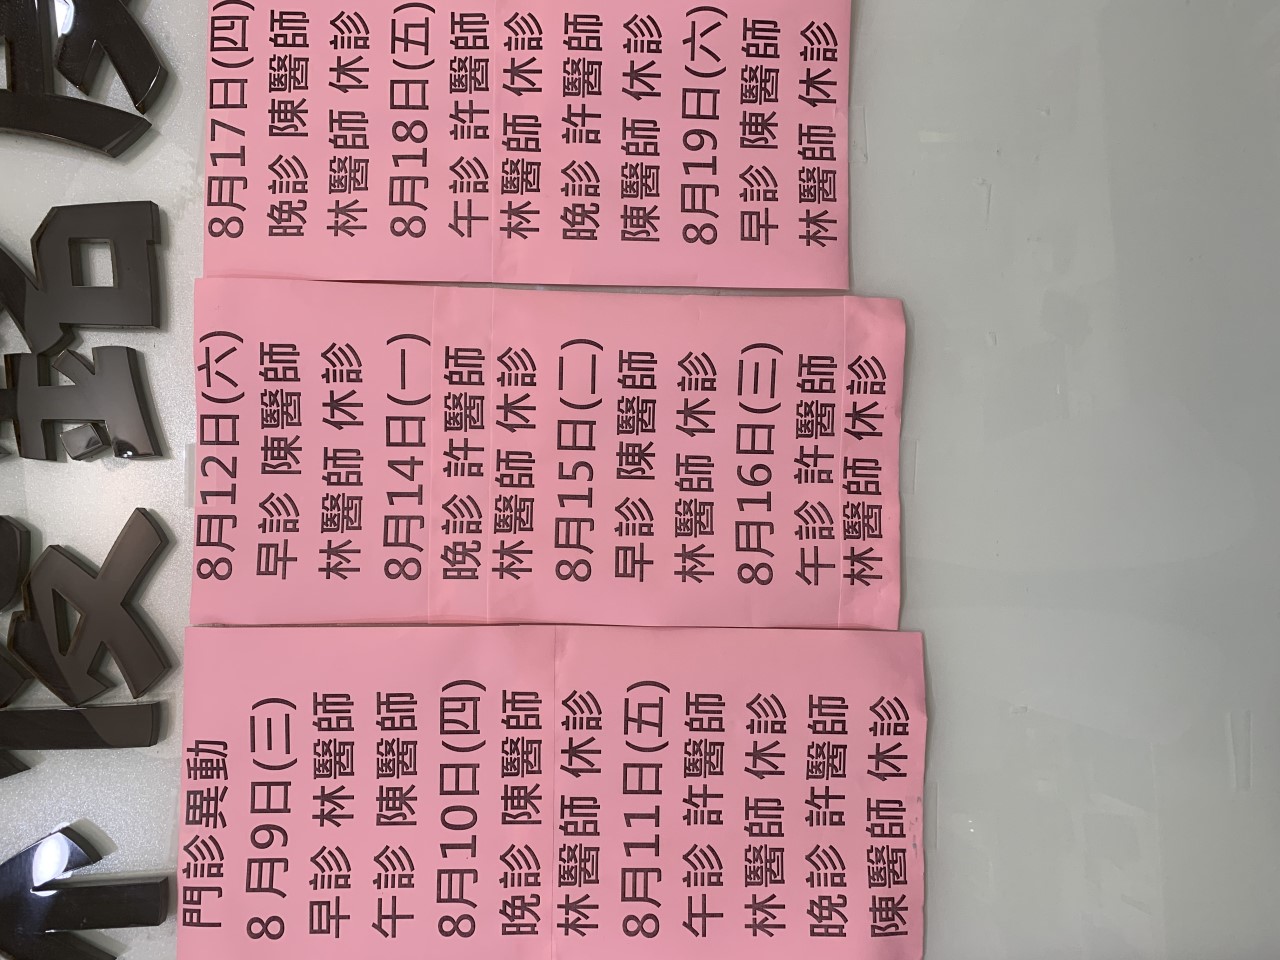 門診異動
8 月9日(三)
早診 林醫師
午診 陳醫師
8月10日(四)
晚診 陳醫師
林醫師 休診
8月11日(五)
午診 許醫師
林醫師 休診
晚診 許醫師
陳醫師 休診
8月12日(六)
早診 陳醫師
林醫師 休診
8月14日(一)
晚診 許醫師
林醫師 休診
8月15日(二)
早診 陳醫師
林醫師 休診
8月16日(三)
午診 許醫師
林醫師 休診
8月17日(四)
晚診 陳醫師
林醫師 休診
8月18日(五)
午診 許醫師
林醫師 休診
晚診 許醫師
陳醫師 休診
8月19日(六)
早診 陳醫師
林醫師 休診